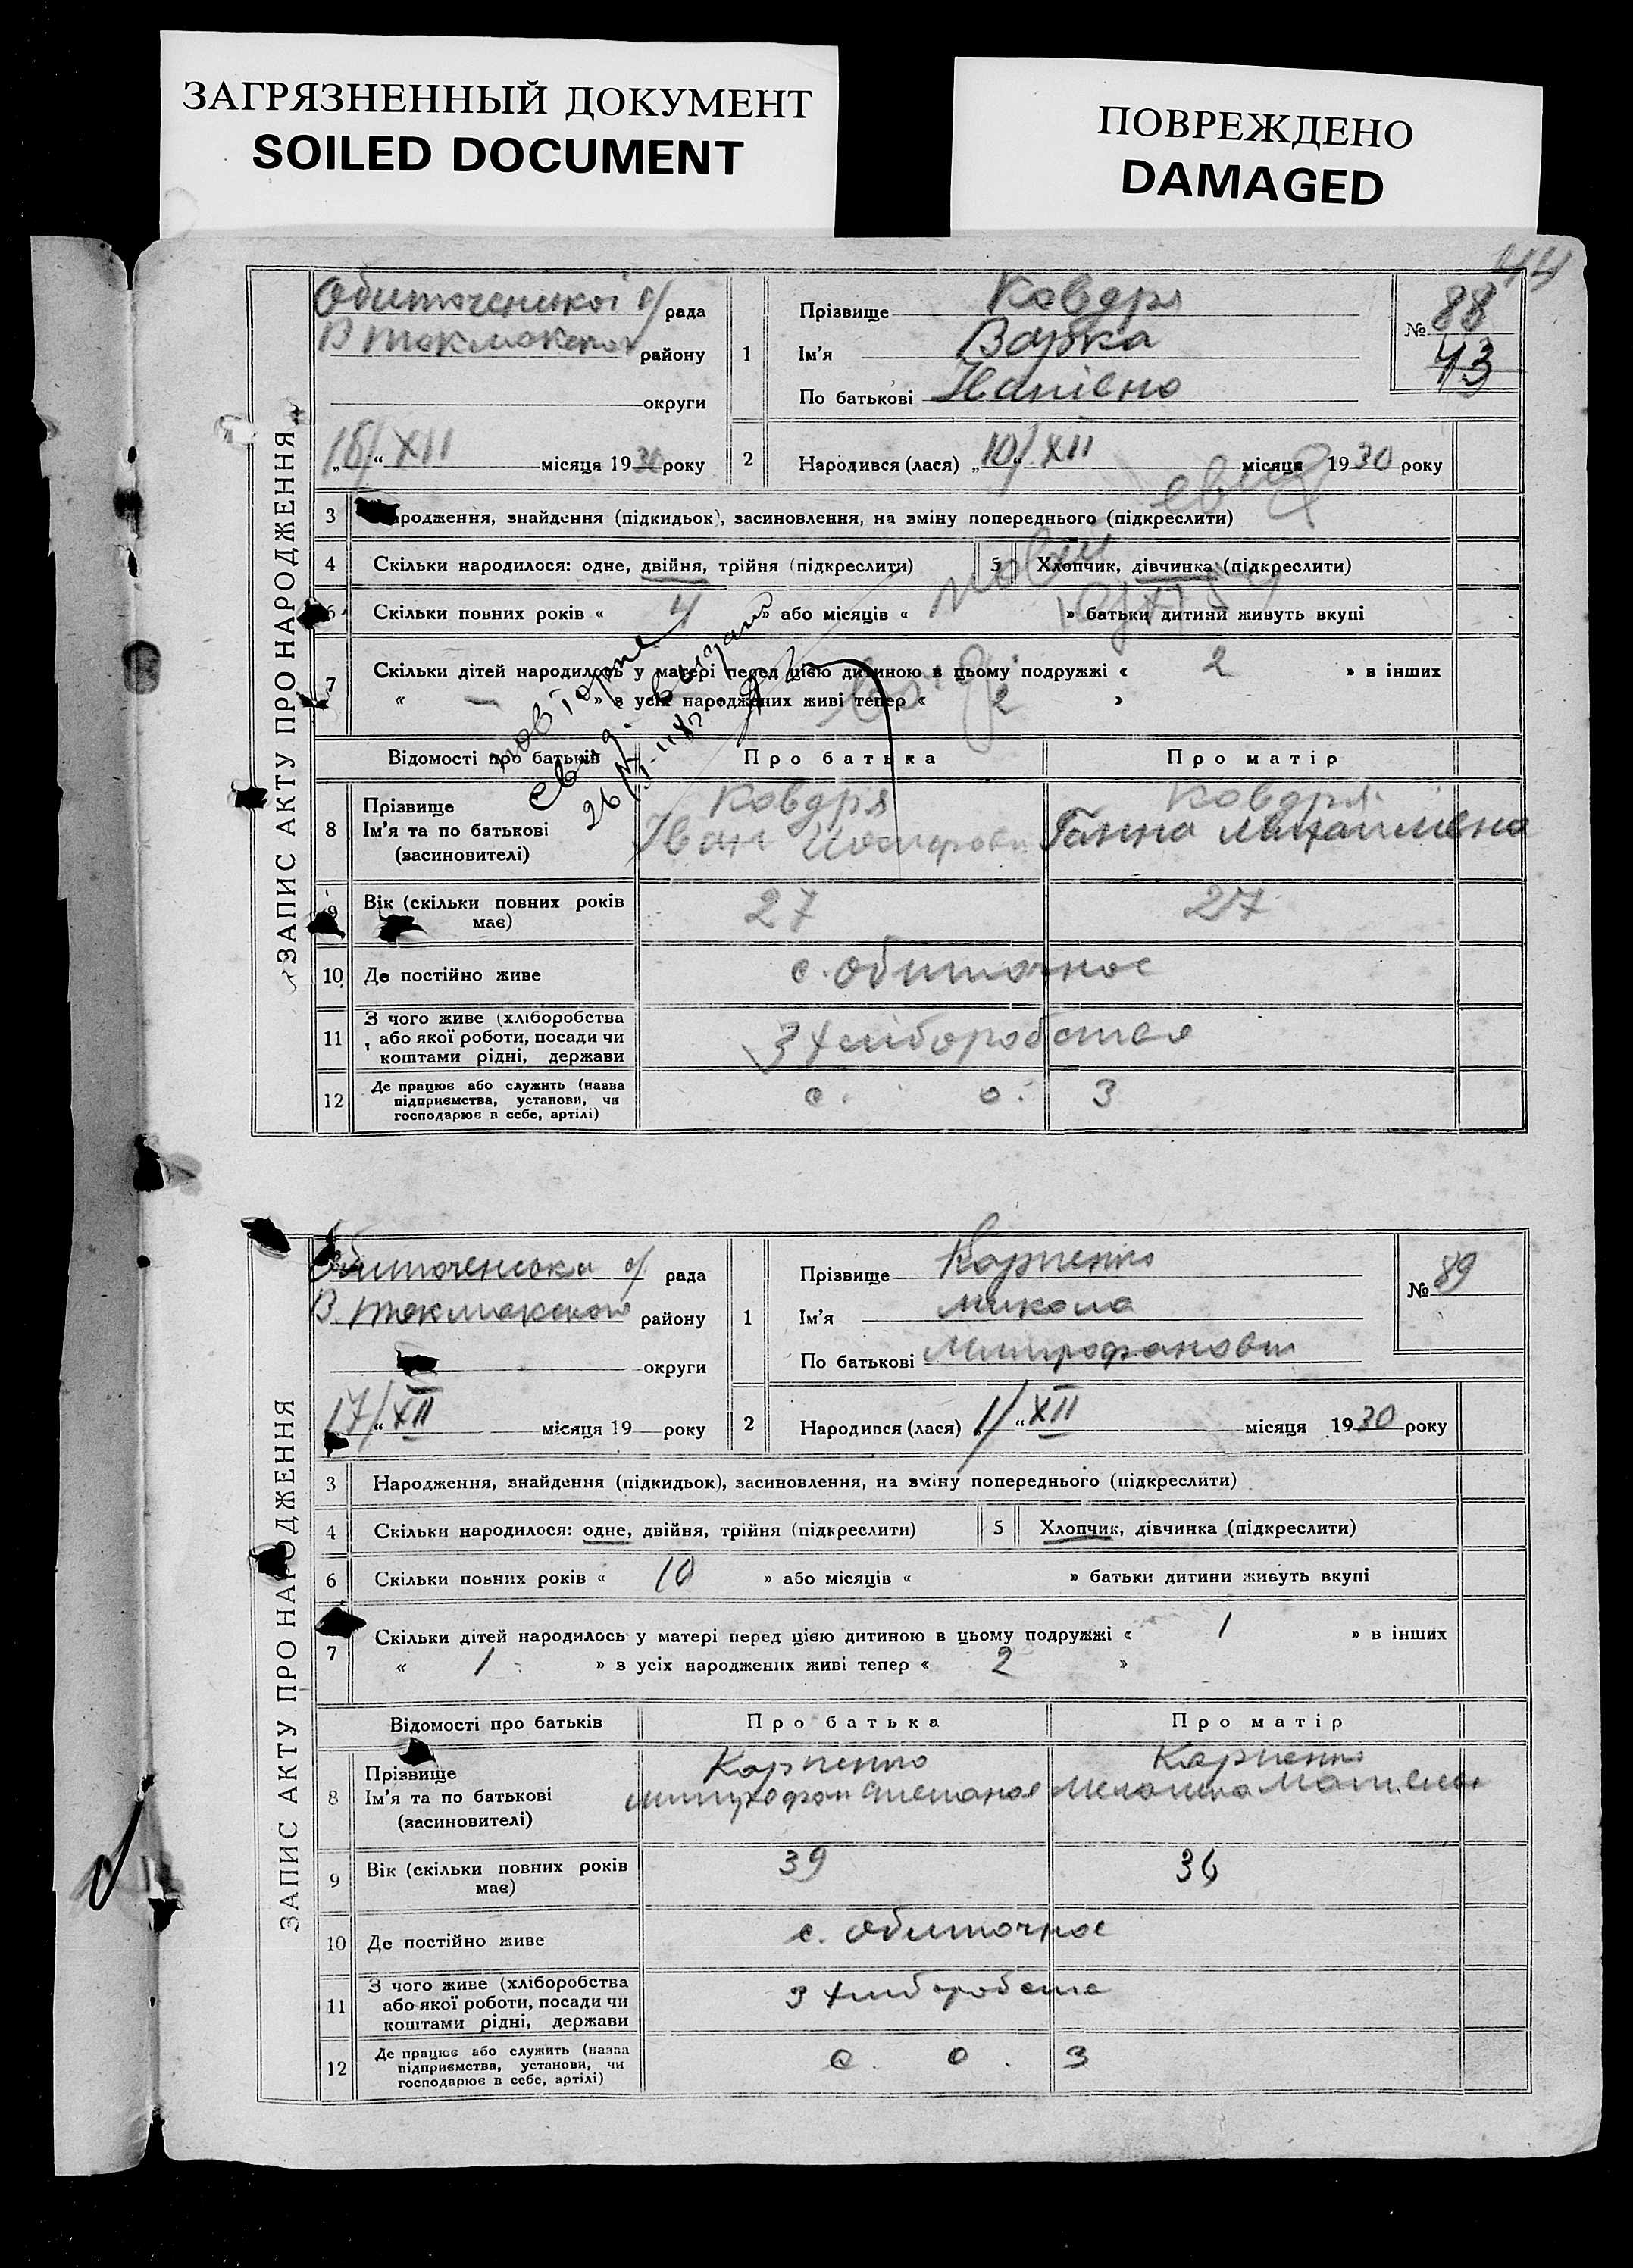 ЗАГРЯЗНЕННЫЙ ДОКУМЕНТ
SOILED DOCUMENT
ПОВРЕЖДЕНО
DAMAGED
44
ЗАПИС АКТУ ПРО НАРОДЖЕННЯ
Обиточенської с/ рада
В Токмакског району
округи
"16/" XII місяця 1930 року
1 Прізвище Ковдря
Ім'я Варка
По батькові
№ 88
43
2 Народився (лася) "10/ XII місяця 1930 року
3 ародження, знайдення (підкидьок), засиновлення, на зміну попереднього (підкреслити)
4 Скільки народилося: одне, двійня, трійня (підкреслити) 5 Хлопчик, дівчинка (підкреслити)
6 Скільки повних років « 4 » або місяців « » батьки дитини живуть вкупі
7 Скільки дітей народилось у матері перед цією дитиною в цьому подружжі « 2 » в інших
« — » в усіх народжених живі тепер « 2 »
повторне
свид.
Відомості про батьків Про батька Про матір
8 Прізвище Ковдря Ковдря
Ім'я та по батькові Іван Ганна Михаиливна
(засновителі)
9 Вік (скільки повних років має) 27 27
10 Де постійно живе с. Обиточное
11 З чого живе (хліборобства або якої роботи, посади чи коштами рідні, держави З хліборобства
12 Де працює або служить (назва підприємства, установи, чи господарює в себе, артілі) с. о. з
ЗАПИС АКТУ ПРО НАРОДЖЕННЯ
Обиточенська с/ рада
В. Токмакского району
округи
17/" XII місяця 19 року
1 Прізвище Карпенко
Ім'я Микола
По батькові Митрофанович
№ 89
2 Народився (лася) 1/" XII місяця 1930 року
3 Народження, знайдення (підкидьок), засиновлення, на зміну попереднього (підкреслити)
4 Скільки народилося: одне, двійня, трійня (підкреслити) 5 Хлопчик, дівчинка (підкреслити)
6 Скільки повних років « 10 » або місяців « » батьки дитини живуть вкупі
7 Скільки дітей народилось у матері перед цією дитиною в цьому подружжі « 1 » в інших
« 1 » в усіх народжених живі тепер « 2 »
Відомості про батьків Про батька Про матір
8 Прізвище Карпенко Карпенко
Ім'я та по батькові Митрофан Степанов
(засиновителі)
9 Вік (скільки повних років має) 39 36
10 Де постійно живе с. Обиточное
11 З чого живе (хліборобства або якої роботи, посади чи коштами рідні, держави З хліборобства
12 Де працює або служить (назва підприємства, установи, чи господарює в себе, артілі) с. о. з